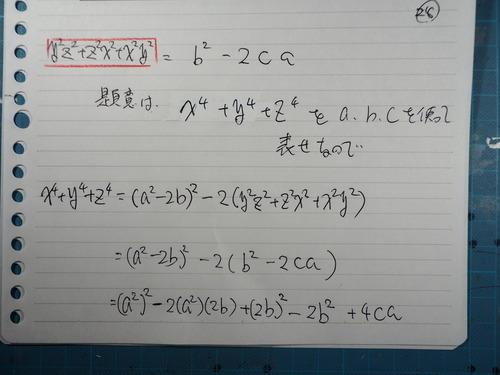 28
y²z²+z²x²+x²y² = b² - 2ca
題意は、x⁴+y⁴+z⁴をa.b.cを使って
表せなので…
x⁴+y⁴+z⁴=(a²-2b)²-2(y²z²+z²x²+x²y²)
=(a²-2b)²-2(b²-2ca)
=(a²)²-2(a²)(2b)+(2b)²-2b²+4ca